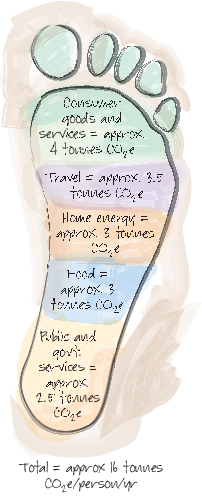 Consumer
goods and
services = approx.
4 tonnes CO₂e
Travel = approx. 3.5
tonnes CO₂e
Home energy =
approx. 3 tonnes
CO₂e
Food =
approx. 3
tonnes CO₂e
Public and
govt.
services =
approx
2.5 tonnes
CO₂e
Total = approx 16 tonnes
CO₂e/person/yr